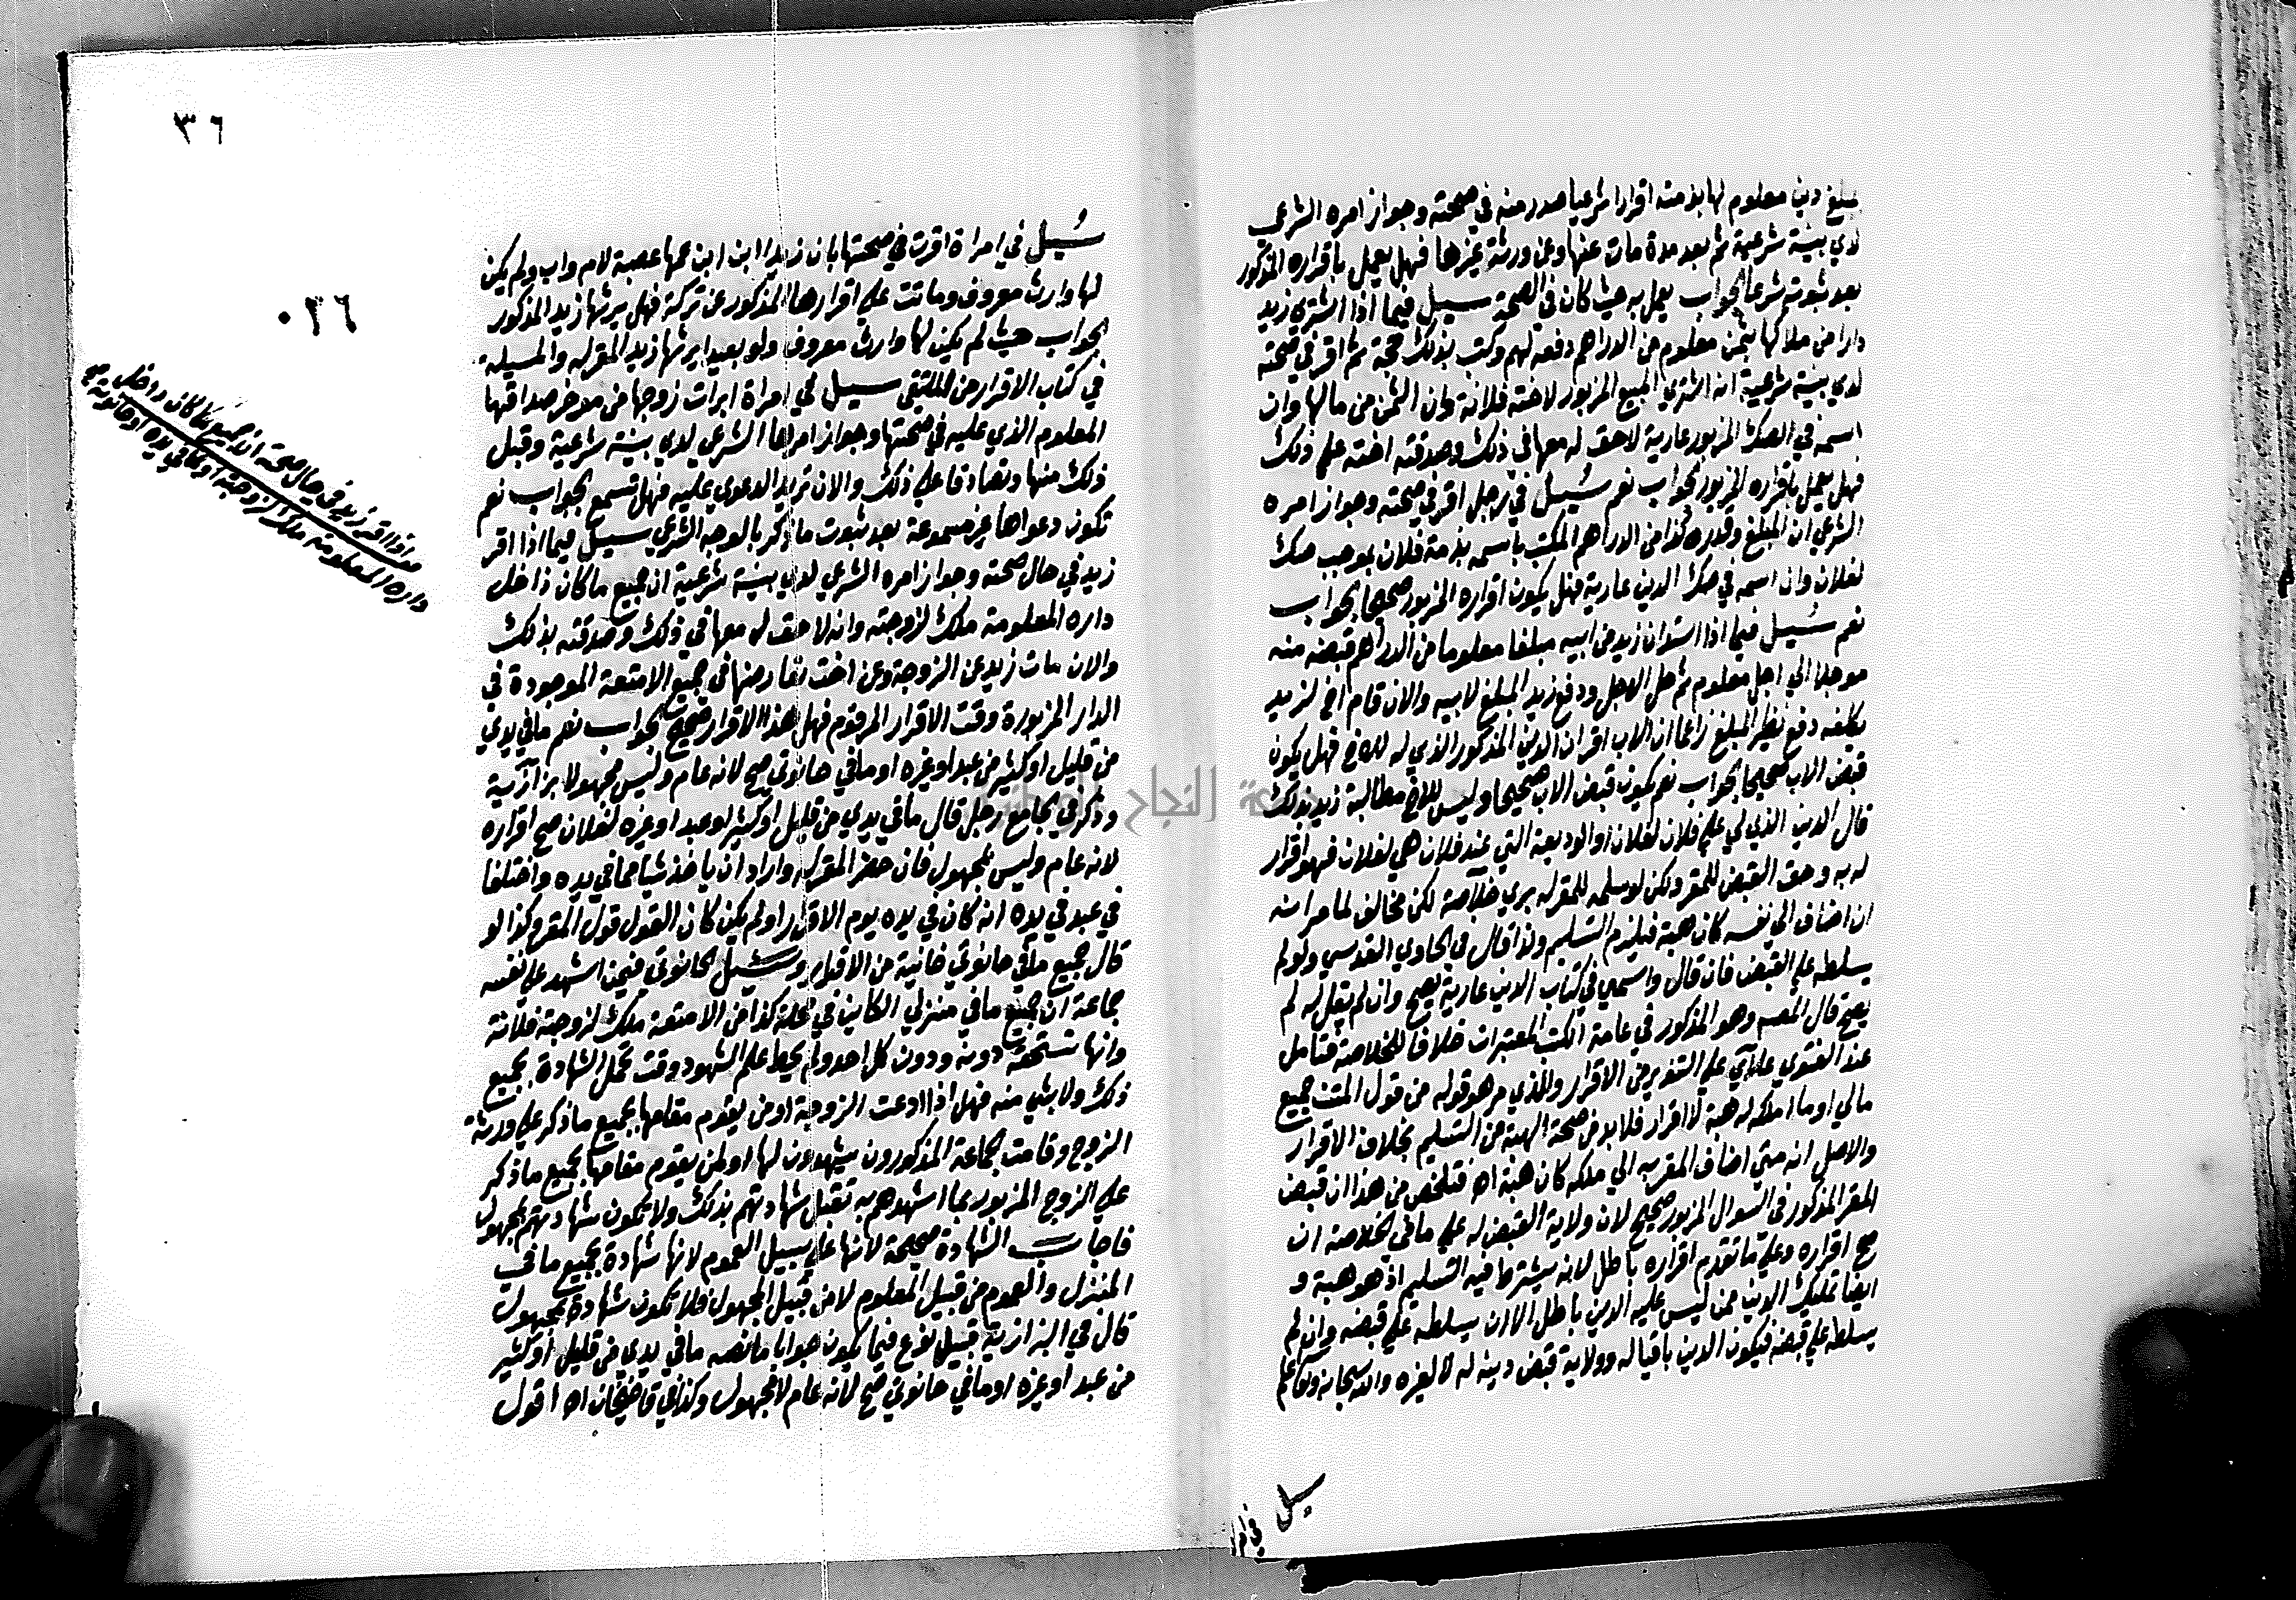 بمبلغ دين معلوم لها بذمته اقرارا شرعيا صدر منه في صحته وجواز امره الشرعي
لدي بينة شرعية ثم بعد مدة مات عنها وعن ورثة غيرها فهل يعمل باقراره المذكور
بعد ثبوته شرعا الجواب يعمل به حيث كان في الصحة سيل فيما اذا اشتري زيد
دارا من ملاكها بثمن معلوم من الدراهم دفعه لهم وكتب بذلك حجة ثم اقر في صحته
لدي بينة شرعية انه اشتري المبيع المزبور لاخته فلانة وان الثمن من مالها وان
اسمه في الصك المزبور عارية لا حق له معها في ذلك وصدقته اخته علي ذلك
فهل يعمل باقراره المزبور الجواب نعم سيل في رجل اقر في صحته وجواز امره
الشرعي ان المبلغ وقدره كذا من الدراهم المكتب باسمه بذمة فلان بموجب صك
لفلان وان اسمه في صك الدين عارية فهل يكون اقراره المزبور صحيحا الجواب
نعم سيل فيما اذا استدان زيد من ابيه مبلغا معلوما من الدراهم قبضه منه
موجلا الي اجل معلوم ثم حل الاجل ودفع زيد المبلغ لابيه والان قام اخ لزيد
يكلفه دفع نظير المبلغ زاعما ان الاب اقر ان الدين المذكور الذي له للاخ فهل يكون
قبض الاب صحيحا الجواب نعم يكون قبض الاب صحيحا وليس للاخ مطالبة زيد بذلك
قال الدين الذي لي علي فلان لفلان او الوديعة التي عند فلان هي لفلان فهو اقرار
له به وحق القبض للمقر ولكن لو سلمه للمقر له بري خلاصة لكن مخالف لما مر انه
ان اضاف الي نفسه كان هبة فيلزم التسليم ولذا قال في الحاوي القدسي ولو لم
يسلطه علي القبض فان قال واسمي في كتاب الدين عارية يصح وان لم يقل له لم
يصح قال المصـ وهو المذكور في عامة الكتب المعتبرات خلافا للخلاصة فتامل
عند الفتوي علاي علي التنوير من الاقرار والذي مر هو قوله من قول المتن جميع
مالي او ما املكه له هبة لا اقرار فلابد من صحة الهبة من التسليم بخلاف الاقرار
والاصل انه متي اضاف المقر به الي ملكه كان هبة اه فتلخص من هذا ان قبض
المقر المذكور في السوال المزبور صحيح لان ولاية القبض له علي ما في الخلاصة ان
صح اقراره وعلي ما تقدم اقراره باطل لانه يشترط فيه التسليم اذ هو هبة و
ايضا تمليك الدين ممن ليس عليه الدين باطل الا ان يسلطه علي قبضه وان لم
يسلطه علي قبضه فيكون الدين باقيا له وولاية قبض دينه له لا لغيره والله سبحانه وتعالي اعلم
سيل
٣٦
٠٣٦
سيل في امراة اقرت في صحتها بان زيدا ابن ابن عمها عصبة لام واب ولم يكن
لها وارث معروف وماتت علي اقرارها المذكور عن تركة فهل يرثها زيد المذكور
الجواب حيث لم يكن لها وارث معروف ولو بعيدا يرثها زيد المقر له والمسيلة
في كتاب الاقرار من الملتقي سيل في امراة ابرات زوجها من موخر صداقها
المعلوم الذي عليه في صحتها وجواز امرها الشرعي لدي بينة شرعية وقبل
ذلك منها وتصادقا علي ذلك والان تريد الدعوي عليه فهل تسمع الجواب نعم
تكون دعواها غير مسموعة بعد ثبوت ما ذكر بالوجه الشرعي سيل فيما اذا اقر
زيد في حال صحته وجواز امره الشرعي لدي بينة شرعية ان جميع ما كان داخل
داره المعلومة ملك لزوجته وانه لا حق له معها في ذلك وصدقته بذلك
والان مات زيد عن الزوجة وعن اخت تعارضها في جميع الامتعة الموجودة في
الدار المزبورة وقت الاقرار المرقوم فهل هذا الاقرار صحيح الجواب نعم ما في يدي
من قليل او كثير من عبد او غيره او ما في حانوتي صح لانه عام وليس مجهولا بزازية
وذكر في الجامع رجل قال ما في يدي من قليل او كثير او عبد او غيره لفلان صح اقراره
لانه عام وليس بمجهول فان حضر المقر له واراد ان ياخذ شيا مما في يده واختلفا
في عبد في يده انه كان في يده يوم الاقرار او لم يكن كان القول قول المقر وكذا لو
قال جميع ما في حانوتي خانية من الاقرار وسئل الحانوتي فيمن اشهد علي نفسه
جماعة ان جميع ما في منزلي الكاين في محلة كذا من الامتعة ملك لزوجته فلانة
وانها تستحقه دونه ودون كل احد ولم يحط علم الشهود وقت تحمل الشهادة بجميع
ذلك ولا بشي منه فهل اذا ادعت الزوجة او من يقوم مقامها بجميع ما ذكر علي ورثة
الزوج وقامت الجماعة المذكورون يشهدون لها او لمن يقوم مقامها بجميع ما ذكر
علي الزوج المزبور بما اشهدهم به تقبل شهادتهم بذلك ولا تكون شهادتهم بمجهول
فاجاب الشهادة صحيحة لانها علي سبيل العموم لانها شهادة بجميع ما في
المنزل والعموم من قبيل المعلوم لا من قبيل المجهول فلا تكون شهادة بمجهول
قال في البزازية قبيل نوع فيما يكون جوابا ما نصه ما في يدي من قليل او كثير
من عبد او غيره او ما في حانوتي صح لانه عام لا مجهول وكذا في قاضيخان اه اقول
اذا اقر زيد في حال صحته ان جميع ما كان داخل
داره المعلومة ملك لزوجته او ما في يده او حانوته صح